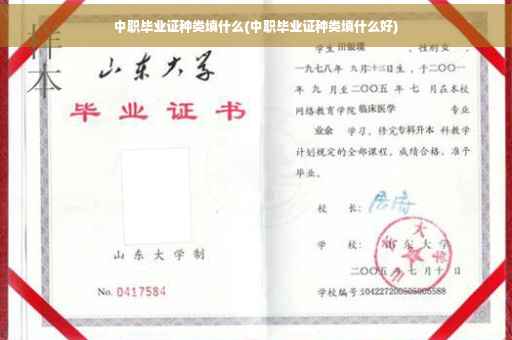 中职毕业证种类填什么(中职毕业证种类填什么好)
样本
山东大学
毕业证书
山东大学制
No. 0417584
学生 田银瑞 ,性别 女 ,
一九七八年 九月十三日生,于二〇〇一
年 九 月至二〇〇五 年 七 月在本校
网络教育学院 临床医学 专业
业余 学习,修完专科升本 科教学
计划规定的全部课程,成绩合格,准予
毕业。
校 长:
学 校: 山东大学
二〇〇五年 七 月 十 日
学校编号:104227200505005588